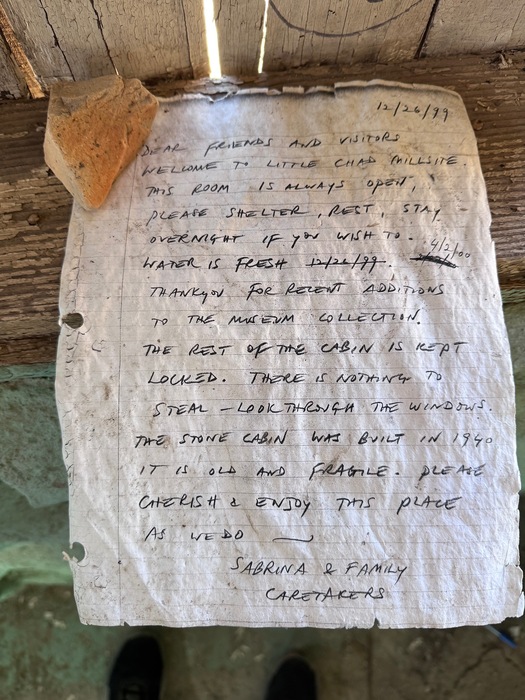 12/26/99
DEAR FRIENDS AND VISITORS
WELCOME TO LITTLE CHAD MILLSITE.
THIS ROOM IS ALWAYS OPEN,
PLEASE SHELTER, REST, STAY
OVERNIGHT IF YOU WISH TO.
4/2/00
WATER IS FRESH 12/26/99.
THANKYOU FOR RECENT ADDITIONS
TO THE MUSEUM COLLECTION.
THE REST OF THE CABIN IS KEPT
LOCKED. THERE IS NOTHING TO
STEAL - LOOK THROUGH THE WINDOWS.
THE STONE CABIN WAS BUILT IN 1940
IT IS OLD AND FRAGILE. PLEASE
CHERISH & ENJOY THIS PLACE
AS WE DO
SABRINA & FAMILY
CARETAKERS